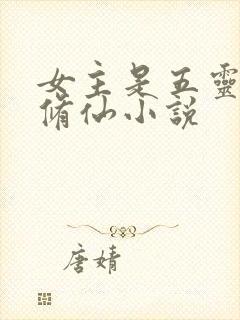 女主是五靈
脩仙小説
唐婧